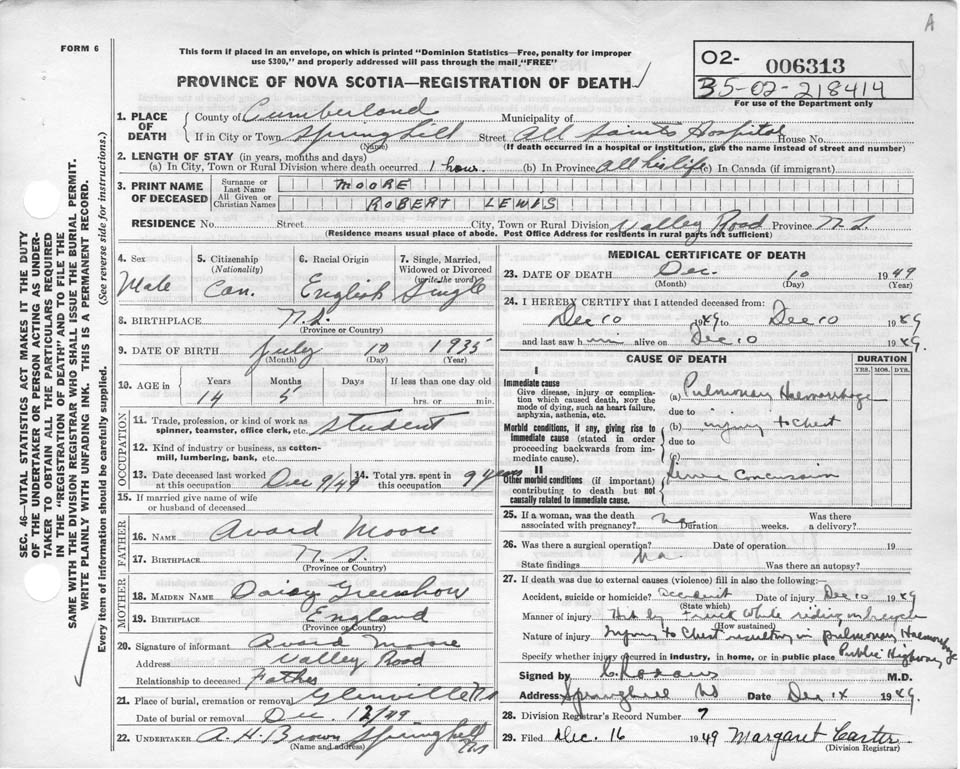 A
FORM 6
This form if placed in an envelope, on which is printed "Dominion Statistics—Free, penalty for improper
use $300," and properly addressed will pass through the mail "FREE"
PROVINCE OF NOVA SCOTIA—REGISTRATION OF DEATH
O2- 006313
35-02-218414
For use of the Department only
SEC. 46—VITAL STATISTICS ACT MAKES IT THE DUTY
OF THE UNDERTAKER OR PERSON ACTING AS UNDER-
TAKER TO OBTAIN ALL THE PARTICULARS REQUIRED
IN THE "REGISTRATION OF DEATH" AND TO FILE THE
SAME WITH THE DIVISION REGISTRAR WHO SHALL ISSUE THE BURIAL PERMIT.
WRITE PLAINLY WITH UNFADING INK. THIS IS A PERMANENT RECORD.
Every item of information should be carefully supplied. (See reverse side for instructions.)
1. PLACE OF DEATH
County of Cumberland Municipality of
If in City or Town Springhill Street All Saints Hospital House No.
(Name) (If death occurred in a hospital or institution, give the name instead of street and number)
2. LENGTH OF STAY (in years, months and days)
(a) In City, Town or Rural Division where death occurred 1 hour. (b) In Province All his life (c) In Canada (if immigrant)
3. PRINT NAME OF DECEASED
Surname or Last Name MOORE
All Given or Christian Names ROBERT LEWIS
RESIDENCE No. Street City, Town or Rural Division Valley Road Province N.S.
(Residence means usual place of abode. Post Office Address for residents in rural parts not sufficient)
4. Sex
Male
5. Citizenship
(Nationality)
Can.
6. Racial Origin
English
7. Single, Married,
Widowed or Divorced
(write the word)
Single
8. BIRTHPLACE N.S.
(Province or Country)
9. DATE OF BIRTH July 10 1935
(Month) (Day) (Year)
10. AGE in Years Months Days If less than one day old
14 5 hrs. or min.
OCCUPATION
11. Trade, profession, or kind of work as
spinner, teamster, office clerk, etc. Student
12. Kind of industry or business, as cotton-
mill, lumbering, bank, etc.
13. Date deceased last worked
at this occupation Dec 9/49
14. Total yrs. spent in
this occupation 9 years
15. If married give name of wife
or husband of deceased
FATHER
16. NAME Avard Moore
17. BIRTHPLACE N.S.
(Province or Country)
MOTHER
18. MAIDEN NAME Daisy
19. BIRTHPLACE England
(Province or Country)
20. Signature of informant Avard Moore
Address Valley Road
Relationship to deceased Father
21. Place of burial, cremation or removal Glenville NS
Date of burial or removal Dec. 12/49
22. UNDERTAKER A. H. Brown Springhill NS
(Name and address)
MEDICAL CERTIFICATE OF DEATH
23. DATE OF DEATH Dec. 10 1949
(Month) (Day) (Year)
24. I HEREBY CERTIFY that I attended deceased from:
Dec 10 1949 to Dec 10 1949
and last saw him alive on Dec 10 1949.
CAUSE OF DEATH DURATION
YRS. MOS. DYS.
I
Immediate cause
Give disease, injury or complica-
tion which caused death, not the
mode of dying, such as heart failure,
asphyxia, asthenia, etc.
(a) Pulmonary Haemorrhage
due to
Morbid conditions, if any, giving rise to
immediate cause (stated in order
proceeding backwards from im-
mediate cause).
(b) injury to chest
due to
(c)
II
Other morbid conditions (if important)
contributing to death but not
causally related to immediate cause.
Concussion
25. If a woman, was the death
associated with pregnancy? no Duration weeks. Was there a delivery?
26. Was there a surgical operation? Date of operation 19
State findings Na Was there an autopsy?
27. If death was due to external causes (violence) fill in also the following:—
Accident, suicide or homicide? Accident Date of injury Dec 10 1949
(State which)
Manner of injury Hit by truck while riding on bicycle
(How sustained)
Nature of injury Injury to Chest resulting in pulmonary Haemorrhage
Specify whether injury occurred in industry, in home, or in public place Public Highway
Signed by M.D.
Address Springhill NS Date Dec 14 1949.
28. Division Registrar's Record Number 7
29. Filed Dec. 16 1949 Margaret Carter
(Division Registrar)